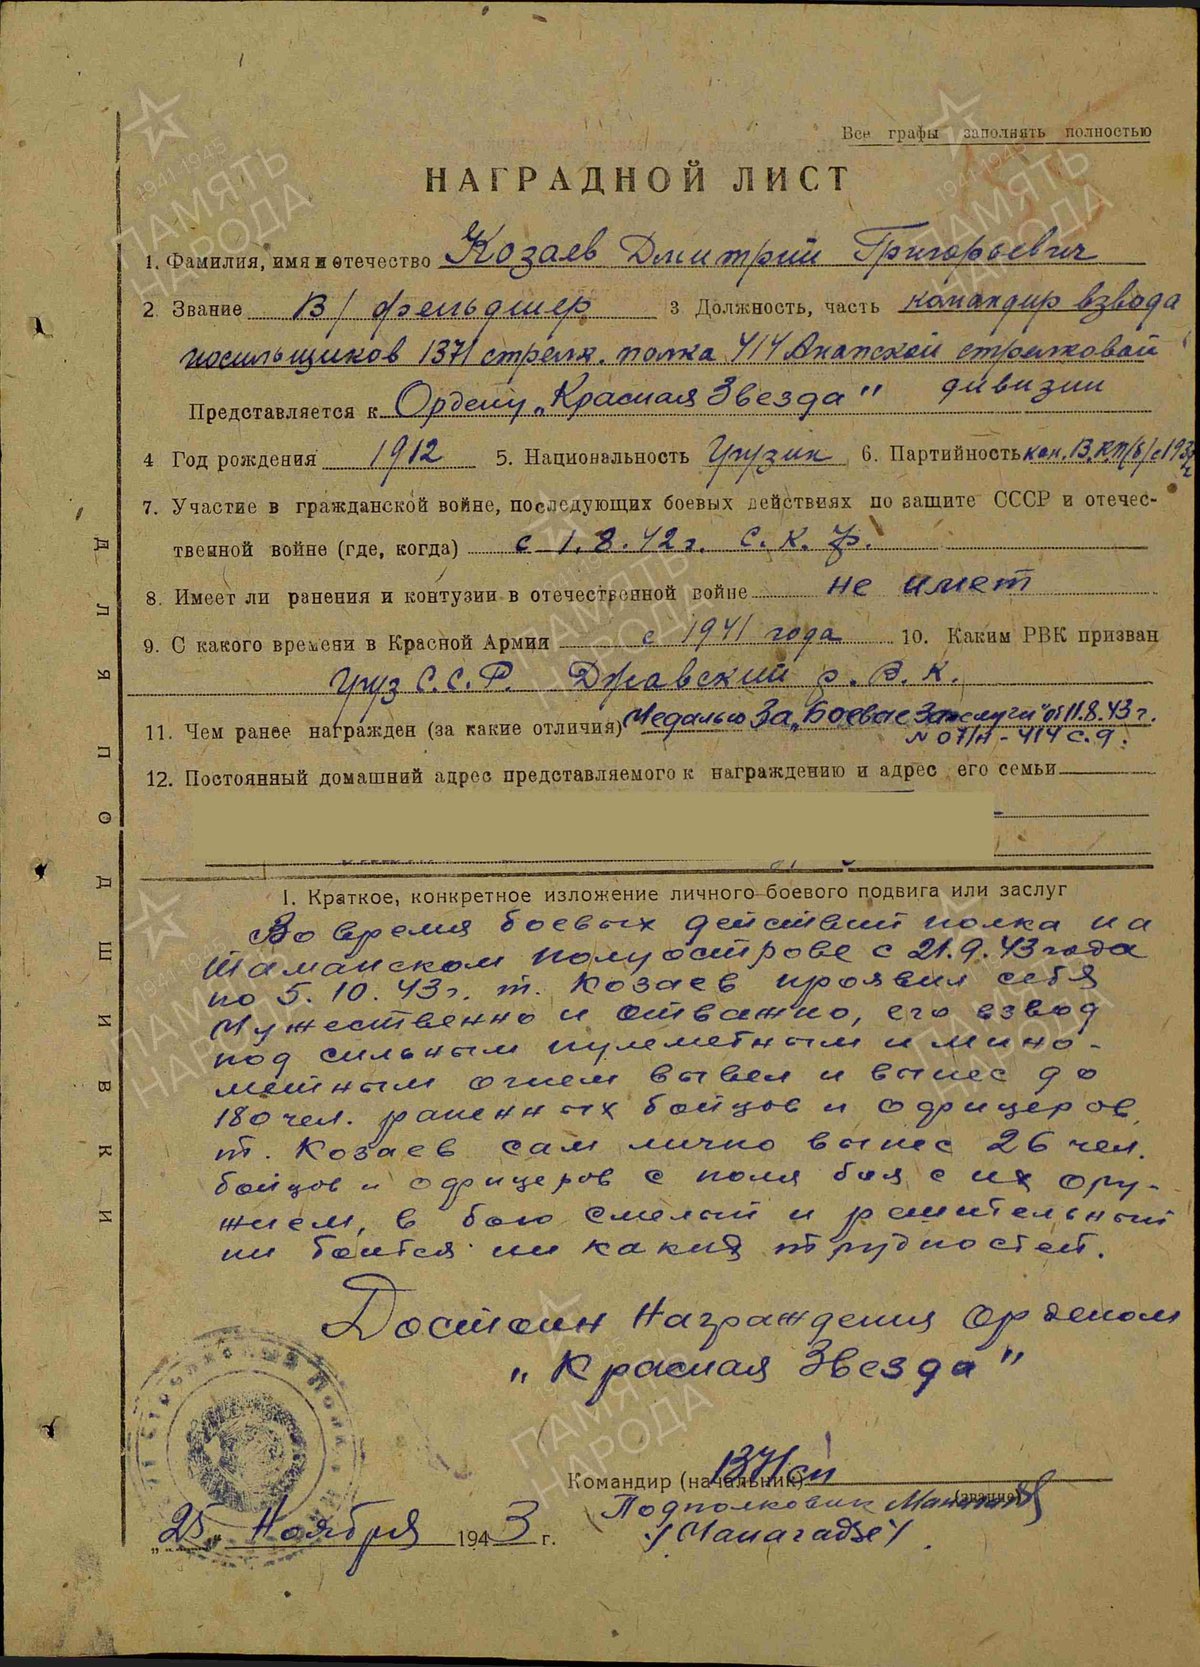 Все графы заполнять полностью
НАГРАДНОЙ ЛИСТ
1. Фамилия, имя и отечество Козаев Дмитрий Григорьевич
2 Звание В/фельдшер 3 Должность, часть командир взвода
носильщиков 1371 стрелк. полка 414 Анапской стрелковой
дивизии
Представляется к Ордену „Красная Звезда"
4 Год рождения 1912 5. Национальность Грузин 6. Партийность кан. В.К.П/б/ с
7. Участие в гражданской войне, последующих боевых действиях по защите СССР и отечес-
твенной войне (где, когда) с 1.8.42г. С.К.ф.
8. Имеет ли ранения и контузии в отечественной войне не имеет
9. С какого времени в Красной Армии с 1941 года 10. Каким РВК призван
Груз С.С.Р. Джавский р.В.К.
11. Чем ранее награжден (за какие отличия) Медалью За „Боевые Заслуги" от 11.8.43г.
№ 07/н - 414 с.д.
12. Постоянный домашний адрес представляемого к награждению и адрес его семьи
I. Краткое, конкретное изложение личного боевого подвига или заслуг
Во время боевых действий полка на
Таманском полуострове с 21.9.43 года
по 5.10.43г. т. Козаев проявил себя
Мужественно и отважно, его взвод
под сильным пулеметным и мино-
метным огнем вывел и вынес до
180 чел. раненных бойцов и офицеров,
т. Козаев сам лично вынес 26 чел.
бойцов и офицеров с поля боя с их ору-
жием, в бою смелый и решительный
ни боится ни каких трудностей.
Достоин Награждения орденом
„Красная Звезда"
Командир (начальник) 1371 сп
(звание)
Подполковник
/Манагадзе/
„25" Ноября 1943 г.
ДЛЯ ПОДШИВКИ
ПАМЯТЬ
НАРОДА
1941-1945